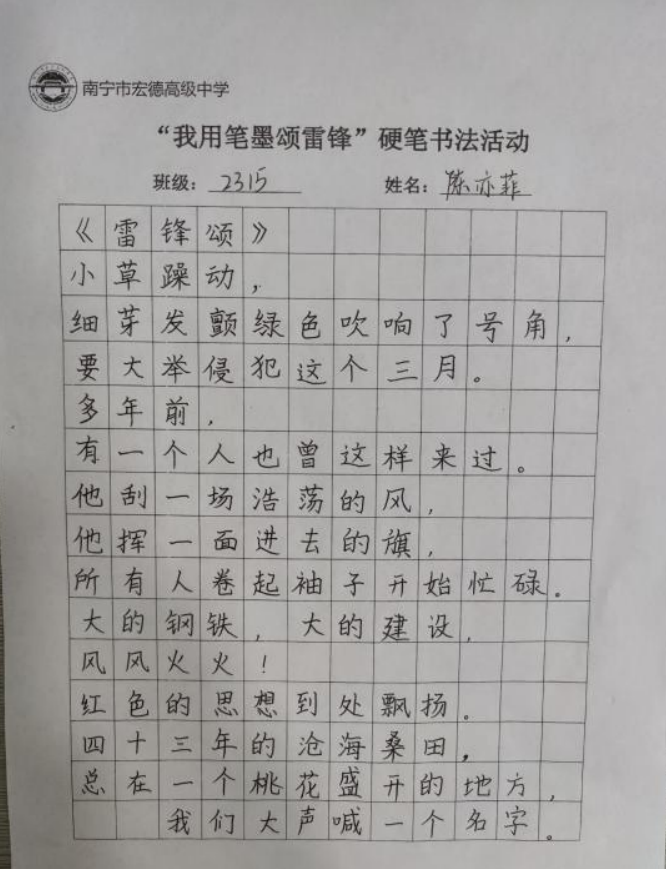 南宁市宏德高级中学
“我用笔墨颂雷锋”硬笔书法活动
班级：2315 姓名：陈亦菲
《雷锋颂》
小草躁动，
细芽发颤绿色吹响了号角，
要大举侵犯这个三月。
多年前，
有一个人也曾这样来过。
他刮一场浩荡的风，
他挥一面进去的旗，
所有人卷起袖子开始忙碌。
大的钢铁，大的建设，
风风火火！
红色的思想到处飘扬。
四十三年的沧海桑田，
总在一个桃花盛开的地方，
我们大声喊一个名字。